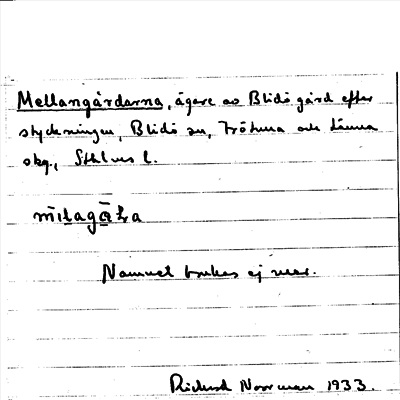 Mellangårdarna, ägare av Blidö gård efter
styckningen, Blidö sn, Frötuna och Länna
skg., Sthlms l.
Namnet brukas ej mer.
Rickard Norrman 1933.